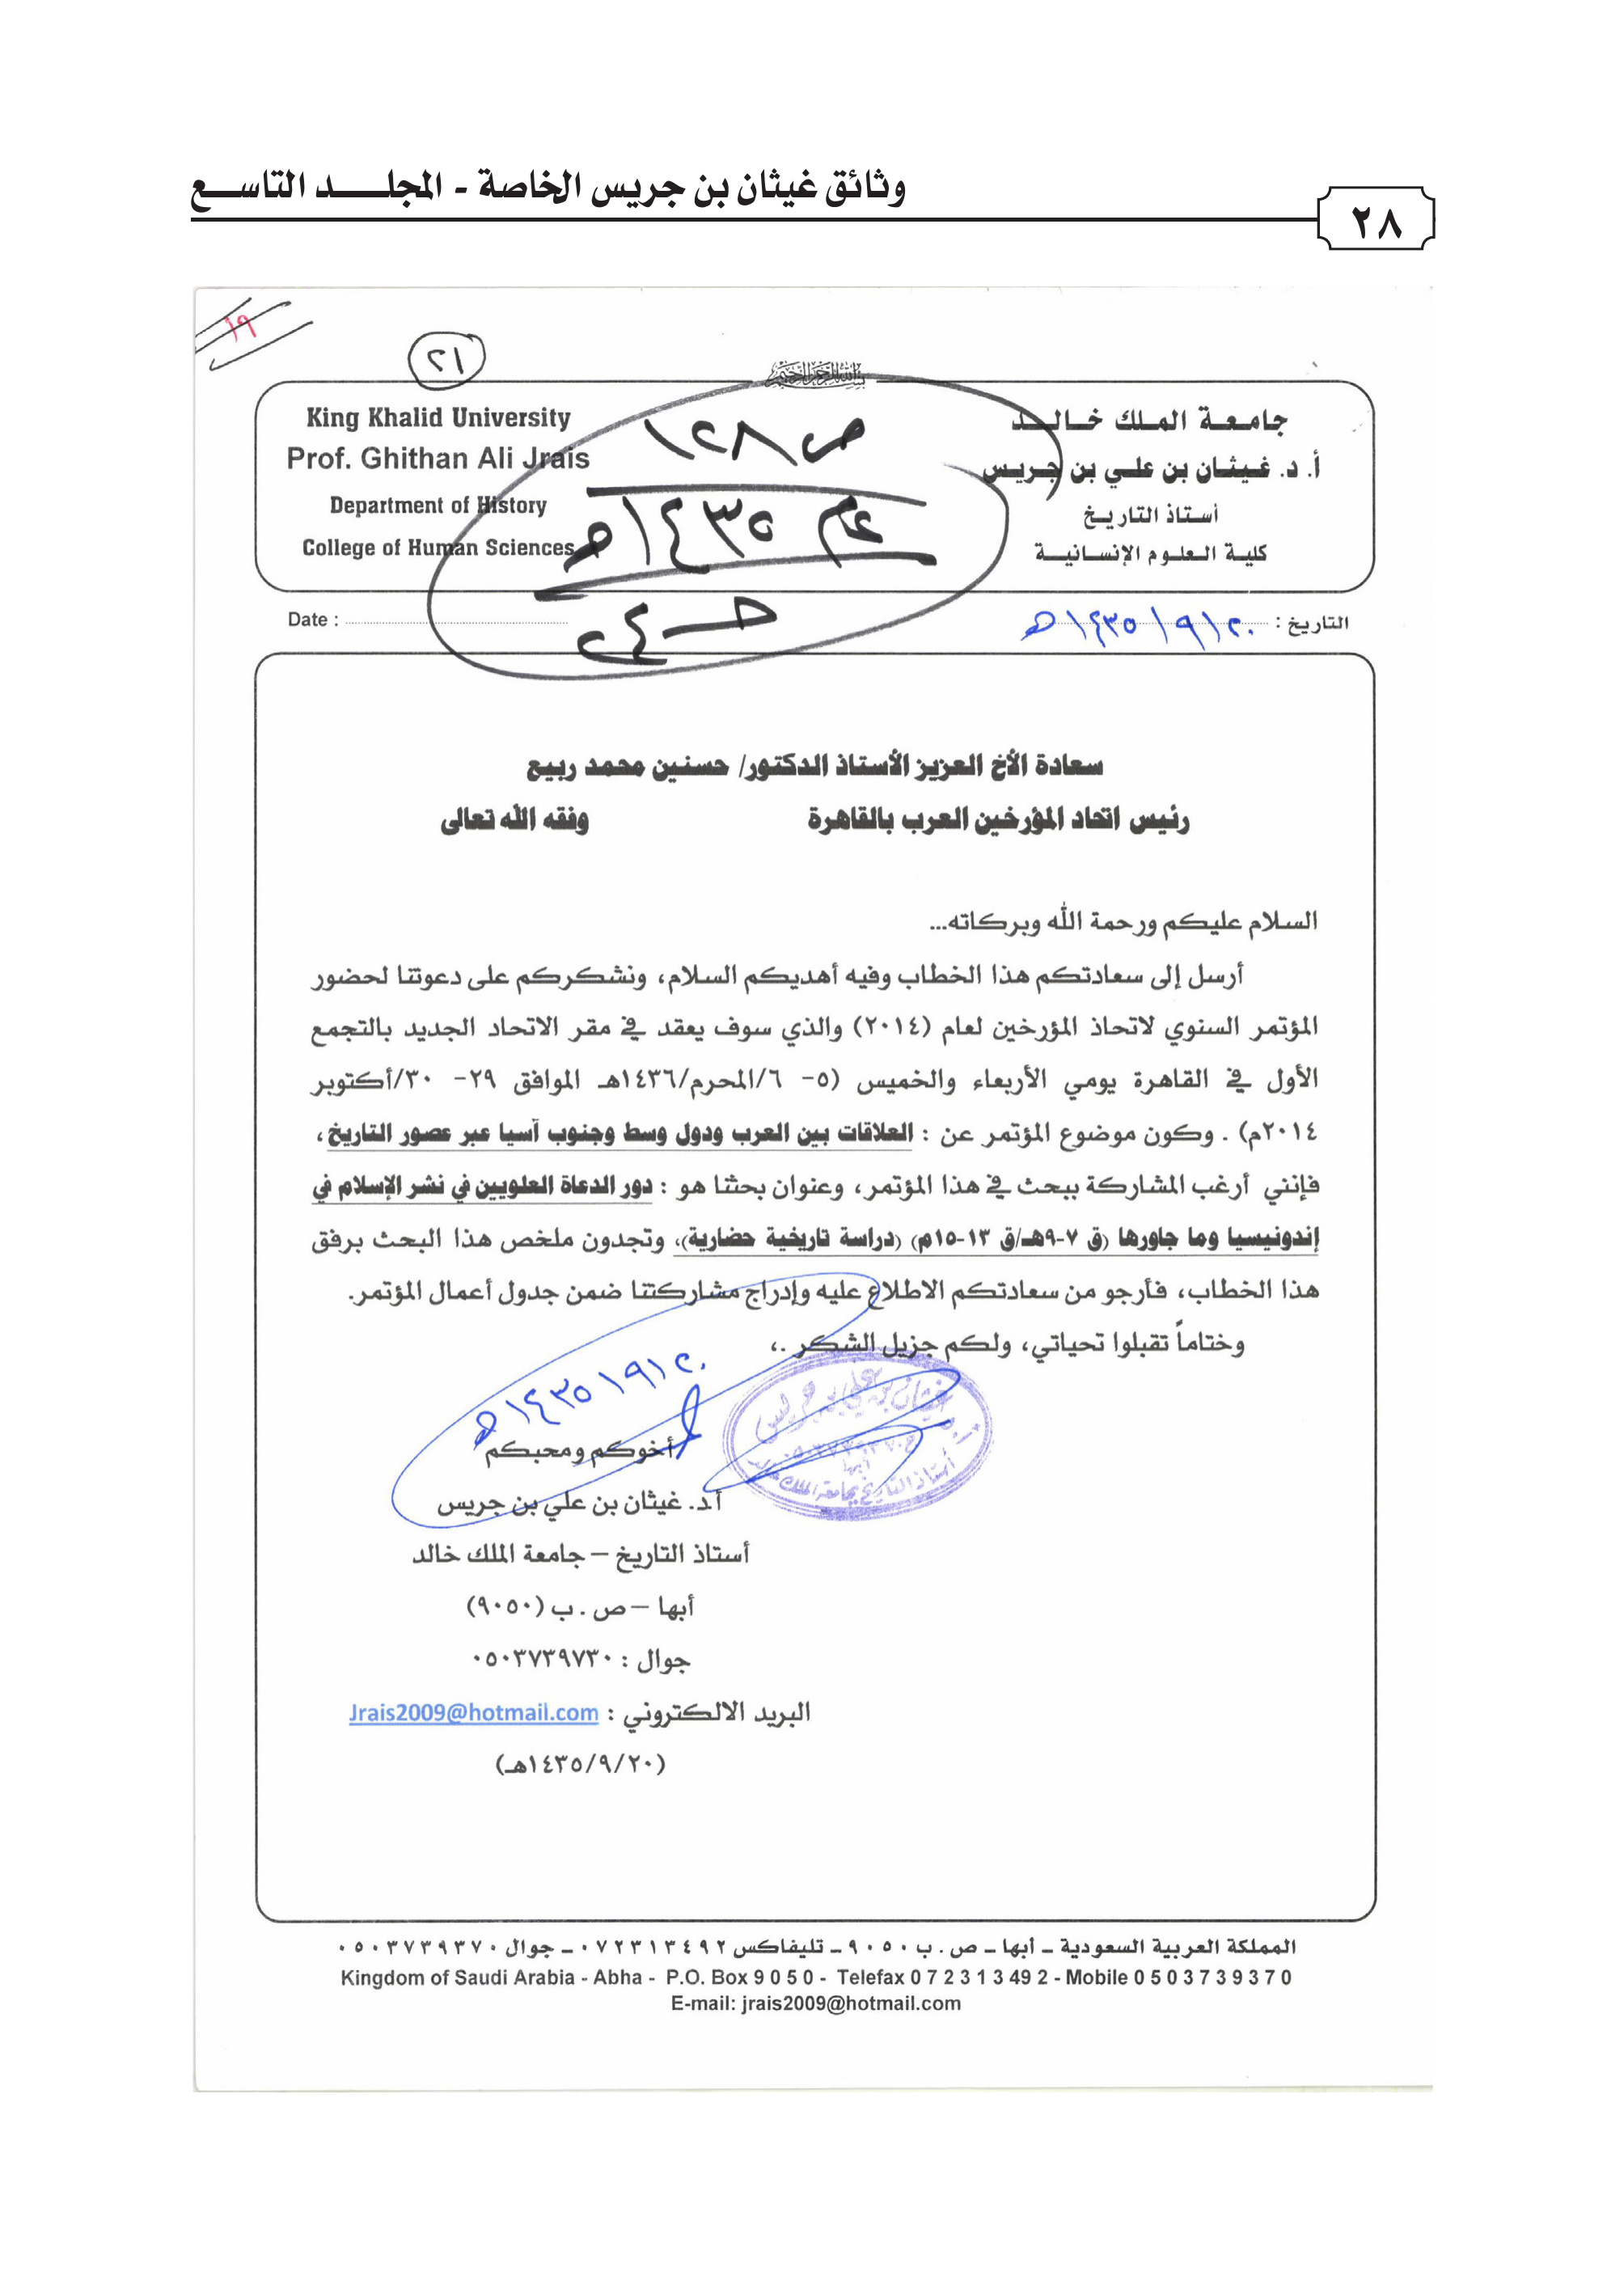 وثائق غيثان بن جريس الخاصة - المجلـــد التاســـع
٢٨
١٩
٢١
بسم الله الرحمن الرحيم
King Khalid University
Prof. Ghithan Ali Jrais
Department of History
College of Human Sciences
جامعة الملك خالد
أ. د. غيثان بن علي بن جريس
أستاذ التاريخ
كلية العلوم الإنسانية
ص ١٢٨
عام ١٤٣٥هـ
Date :
التاريخ : ٢٠/٩/١٤٣٥هـ
سعادة الأخ العزيز الأستاذ الدكتور/ حسنين محمد ربيع
رئيس اتحاد المؤرخين العرب بالقاهرة وفقه الله تعالى
السلام عليكم ورحمة الله وبركاته...
أرسل إلى سعادتكم هذا الخطاب وفيه أهديكم السلام، ونشكركم على دعوتنا لحضور
المؤتمر السنوي لاتحاذ المؤرخين لعام (٢٠١٤) والذي سوف يعقد في مقر الاتحاد الجديد بالتجمع
الأول في القاهرة يومي الأربعاء والخميس (٥- ٦/المحرم/١٤٣٦هـ الموافق ٢٩- ٣٠/أكتوبر
٢٠١٤م) . وكون موضوع المؤتمر عن : العلاقات بين العرب ودول وسط وجنوب آسيا عبر عصور التاريخ ،
فإنني أرغب المشاركة ببحث في هذا المؤتمر، وعنوان بحثنا هو : دور الدعاة العلويين في نشر الإسلام في
إندونيسيا وما جاورها (ق ٧-٩هـ/ق ١٣-١٥م) (دراسة تاريخية حضارية)، وتجدون ملخص هذا البحث برفق
هذا الخطاب، فأرجو من سعادتكم الاطلاع عليه وإدراج مشاركتنا ضمن جدول أعمال المؤتمر.
وختاماً تقبلوا تحياتي، ولكم جزيل الشكر .،
٢٠/٩/١٤٣٥هـ
أخوكم ومحبكم
أ.د. غيثان بن علي بن جريس
أستاذ التاريخ – جامعة الملك خالد
أبها – ص . ب (٩٠٥٠)
جوال : ٠٥٠٣٧٣٩٧٣٠
البريد الالكتروني : Jrais2009@hotmail.com
(٢٠/٩/١٤٣٥هـ)
غيثان بن علي بن جريس
أبها
أستاذ التاريخ بجامعة الملك خالد
المملكة العربية السعودية – أبها – ص . ب ٩٠٥٠ – تليفاكس ٠٧٢٣١٣٤٩٢ – جوال ٠٥٠٣٧٣٩٣٧٠
Kingdom of Saudi Arabia - Abha - P.O. Box 9 0 5 0 - Telefax 0 7 2 3 1 3 49 2 - Mobile 0 5 0 3 7 3 9 3 7 0
E-mail: jrais2009@hotmail.com